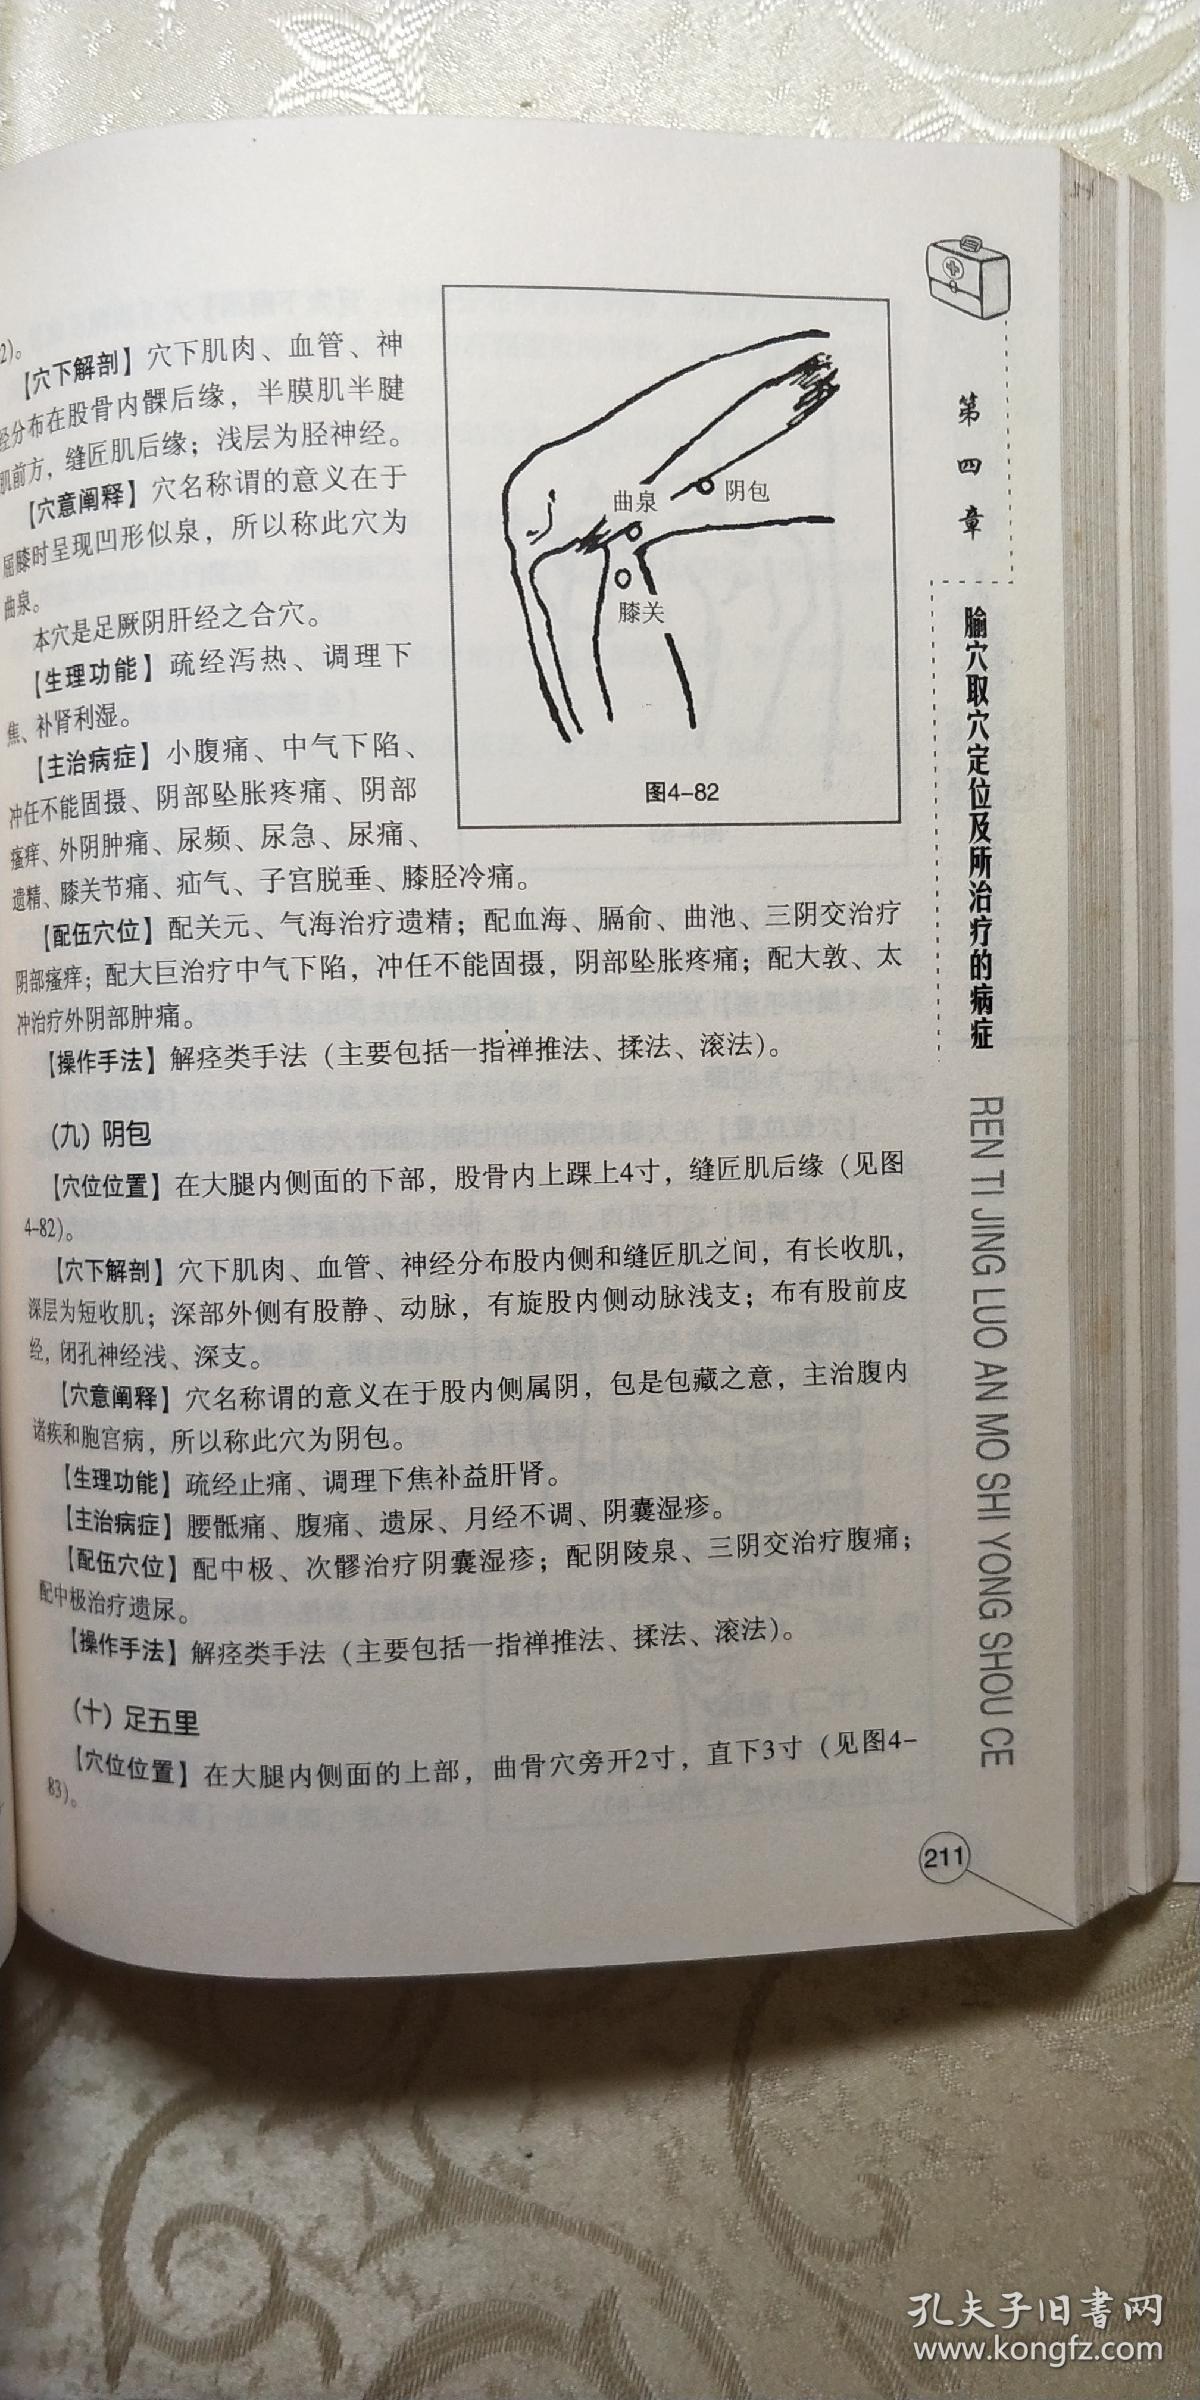 2)。
【穴下解剖】穴下肌肉、血管、神
经分布在股骨内髁后缘，半膜肌半腱
肌前方，缝匠肌后缘；浅层为胫神经。
【穴意阐释】穴名称谓的意义在于
屈膝时呈现凹形似泉，所以称此穴为
曲泉。
本穴是足厥阴肝经之合穴。
【生理功能】疏经泻热、调理下
焦、补肾利湿。
【主治病症】小腹痛、中气下陷、
冲任不能固摄、阴部坠胀疼痛、阴部
瘙痒、外阴肿痛、尿频、尿急、尿痛、
遗精、膝关节痛、疝气、子宫脱垂、膝胫冷痛。
曲泉
阴包
膝关
图4-82
【配伍穴位】配关元、气海治疗遗精；配血海、膈俞、曲池、三阴交治疗
阴部瘙痒；配大巨治疗中气下陷，冲任不能固摄，阴部坠胀疼痛；配大敦、太
冲治疗外阴部肿痛。
【操作手法】解痉类手法（主要包括一指禅推法、揉法、滚法）。
（九）阴包
【穴位位置】在大腿内侧面的下部，股骨内上踝上4寸，缝匠肌后缘（见图
4-82)。
【穴下解剖】穴下肌肉、血管、神经分布股内侧和缝匠肌之间，有长收肌，
深层为短收肌；深部外侧有股静、动脉，有旋股内侧动脉浅支；布有股前皮
经，闭孔神经浅、深支。
【穴意阐释】穴名称谓的意义在于股内侧属阴，包是包藏之意，主治腹内
诸疾和胞宫病，所以称此穴为阴包。
【生理功能】疏经止痛、调理下焦补益肝肾。
【主治病症】腰骶痛、腹痛、遗尿、月经不调、阴囊湿疹。
【配伍穴位】配中极、次髎治疗阴囊湿疹；配阴陵泉、三阴交治疗腹痛；
配中极治疗遗尿。
【操作手法】解痉类手法（主要包括一指禅推法、揉法、滚法）。
（十）足五里
【穴位位置】在大腿内侧面的上部，曲骨穴旁开2寸，直下3寸（见图4-
83)。
第四章
腧穴取穴定位及所治疗的病症
REN TI JING LUO AN MO SHI YONG SHOU CE
211
孔夫子旧书网
www.kongfz.com